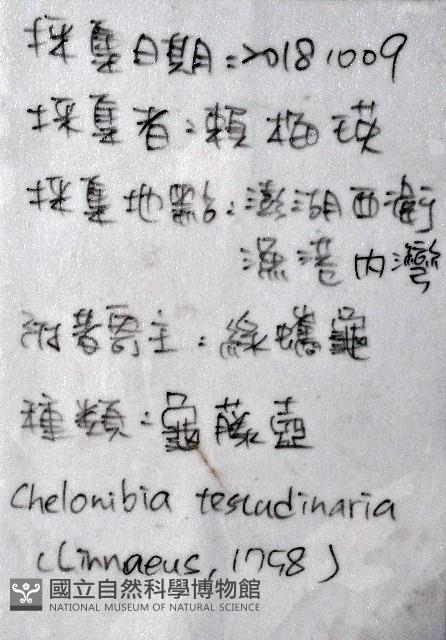 採集日期：20181009
採集者：賴梅瑛
採集地點：澎湖西衛
漁港內灣
附著寄主：綠蠵龜
種類：龜藤壺
Chelonibia testudinaria
(Linnaeus, 1758)
國立自然科學博物館
NATIONAL MUSEUM OF NATURAL SCIENCE